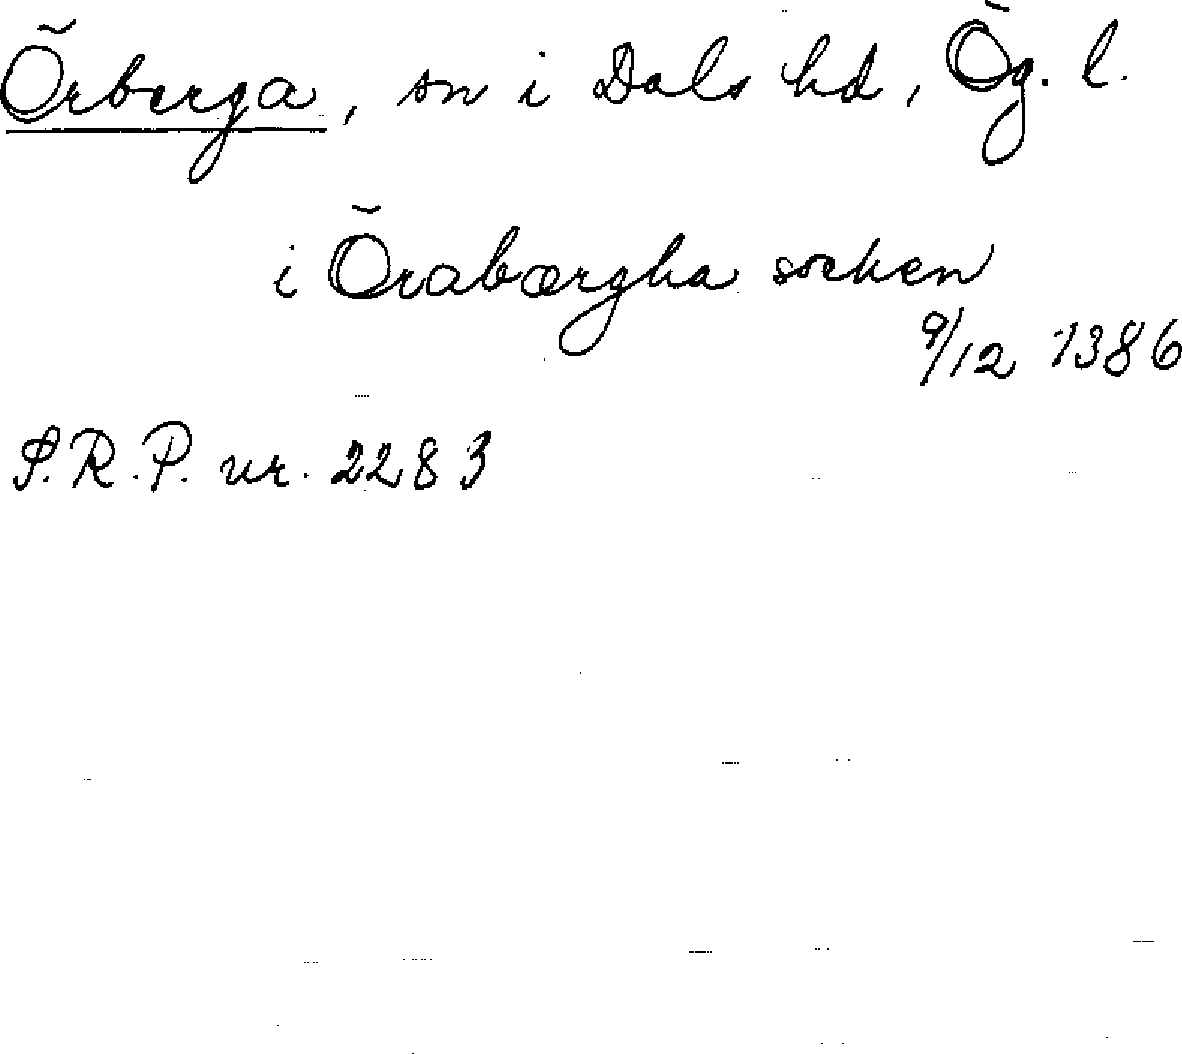 Örberga, sn i Dals hd, Ög. l.
i Örabærgha socken
9/12 1386
S.R.P. nr. 2283